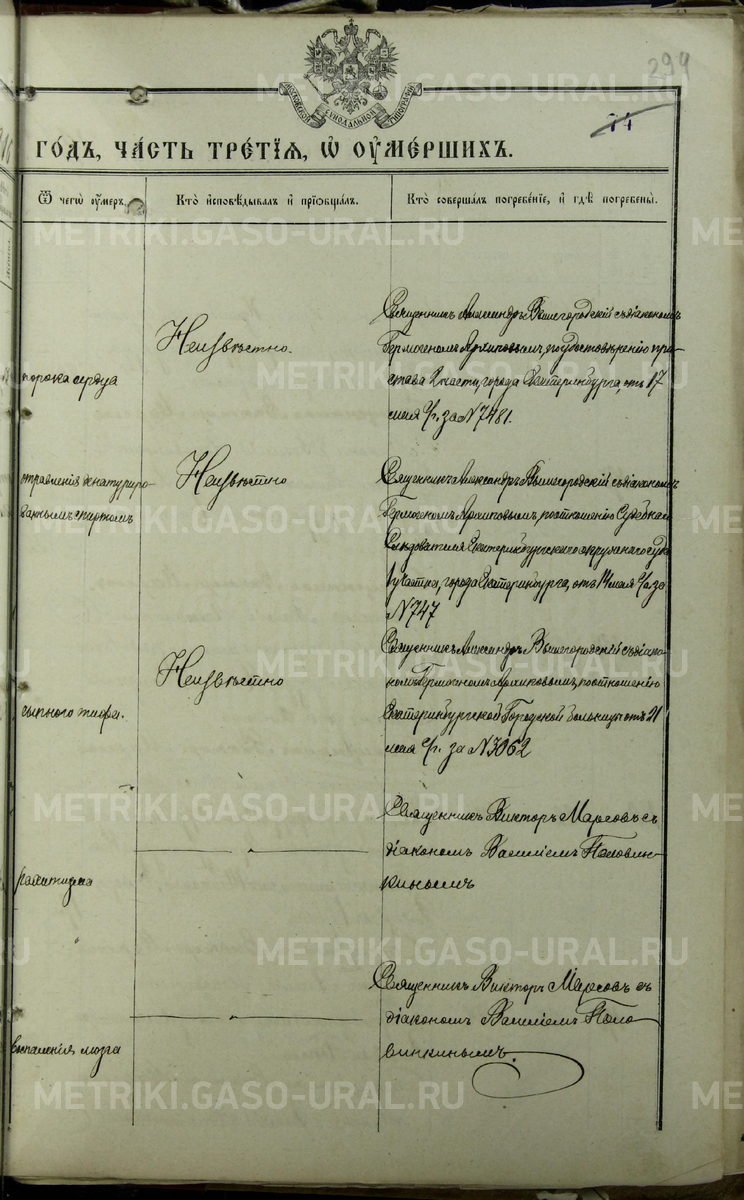 299
74
МОСКОВСКОЙ СѴНОДАЛЬНОЙ ТИПОГРАФІИ
ГО́ДЪ, ЧА́СТЬ ТРЕ́ТІѦ, Ѡ ОУМЕ́РШИХЪ.
Ѿ чегѡ̀ оу́меръ.
Кто̀ и҆сповѣ́дывалъ и҆ прїѡбща́лъ.
Кто̀ соверша́лъ погребе́нїе, и҆ гдѣ̀ погребены̀.
порока сердца
Неизвѣстно.
Священникъ Александръ Вышегородскій съ діакономъ
Гермогеномъ Архиповымъ, по удостовѣренію при-
става 2 части, города Екатеринбурга, отъ 17
мая с/г. за № 7481.
отравленія денатуриро-
ваннымъ спиртомъ
Неизвѣстно
Священникъ Александръ Вышегородскій съ діакономъ
Гермогеномъ Архиповымъ, по отношенію Судебнаго
Слѣдователя Екатеринбургскаго окружнаго суда
1 участка, города Екатеринбурга, отъ 14 мая с/г. за
№ 747
сыпного тифа.
Неизвѣстно
Священникъ Александръ Вышегородскій съ діако-
номъ Гермогеномъ Архиповымъ, по отношенію
Екатеринбургской Городской больницы отъ 21
мая с/г. за № 3062
рахитизма
Священникъ Викторъ Марсовъ съ
діакономъ Василіемъ Половин-
кинымъ
воспаленія мозга
Священникъ Викторъ Марсовъ съ
діакономъ Василіемъ Поло-
винкинымъ.
METRIKI.GASO-URAL.RU